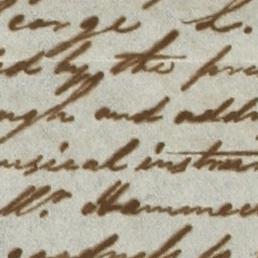 eorge L.
ed by the pro
ugh and addr
usical instrum
Mr. Hammer